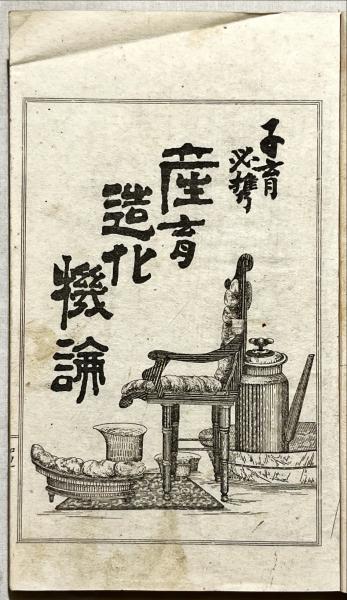 子育
必携
産育
造化
機論